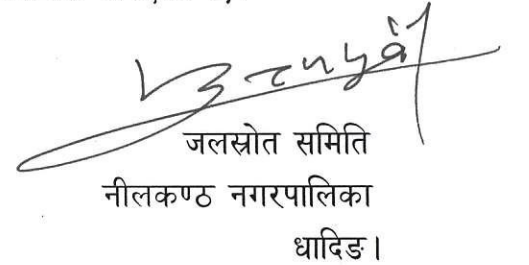 जलस्रोत समिति
नीलकण्ठ नगरपालिका
धादिङ।